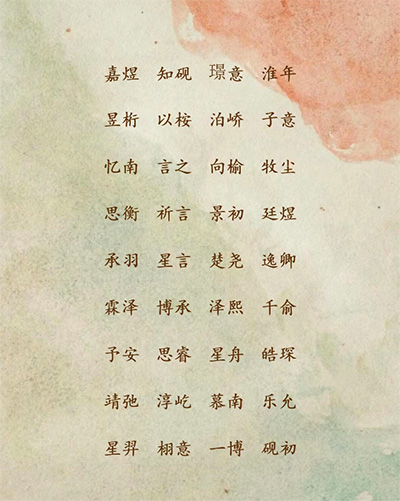 嘉煜 知砚 璟意 淮年
昱桁 以桉 泊峤 子意
忆南 言之 向榆 牧尘
思衡 祈言 景初 廷煜
承羽 星言 楚尧 逸卿
霖泽 博承 泽熙 千俞
予安 思睿 星舟 皓琛
靖弛 淳屹 慕南 乐允
星羿 栩意 一博 砚初